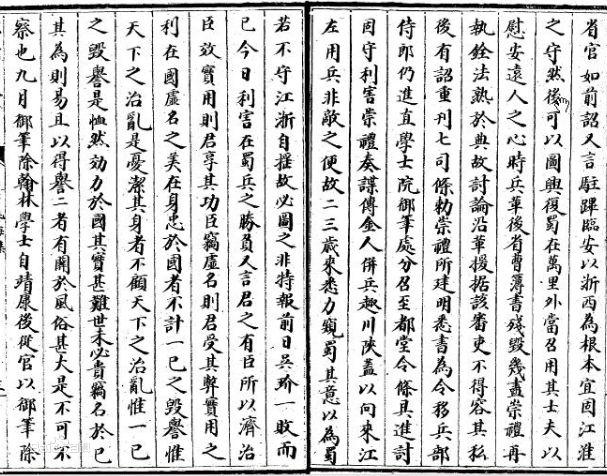 省官如前詔又言駐蹕臨安以浙西為根本宜固江淮
之守然後可以圖興復蜀在萬里外當召用其士夫以
慰安遠人之心時兵革後省曹簿書殘毀幾盡崇禮再
執銓法熟於典故討論沿革援據該審吏不得容其私
後有詔重刋七司條勅崇禮所建明悉書為令移兵部
侍郎仍進直學士院御筆處分召至都堂令條具進討
固守利害崇禮奏諜傳金人併兵趣川陝蓋以向來江
左用兵非敵之便故二三歲來悉力窺蜀其意以為蜀
若不守江浙自揺故必圖之非特報前日吳玠一敗而
已今日利害在蜀兵之勝負又言君之有臣所以濟治
臣效實用則君享其功臣竊虛名則君受其弊實用之
利在國虛名之美在身忠於國者不計一己之毀譽惟
天下之治亂是憂潔其身者不顧天下之治亂惟一己
之毀譽是恤然効力於國其實甚難世未必貴竊名於己
其為則易且以得譽二者有關於風俗甚大是不可不
察也九月御筆除翰林學士自靖康後從官以御筆除